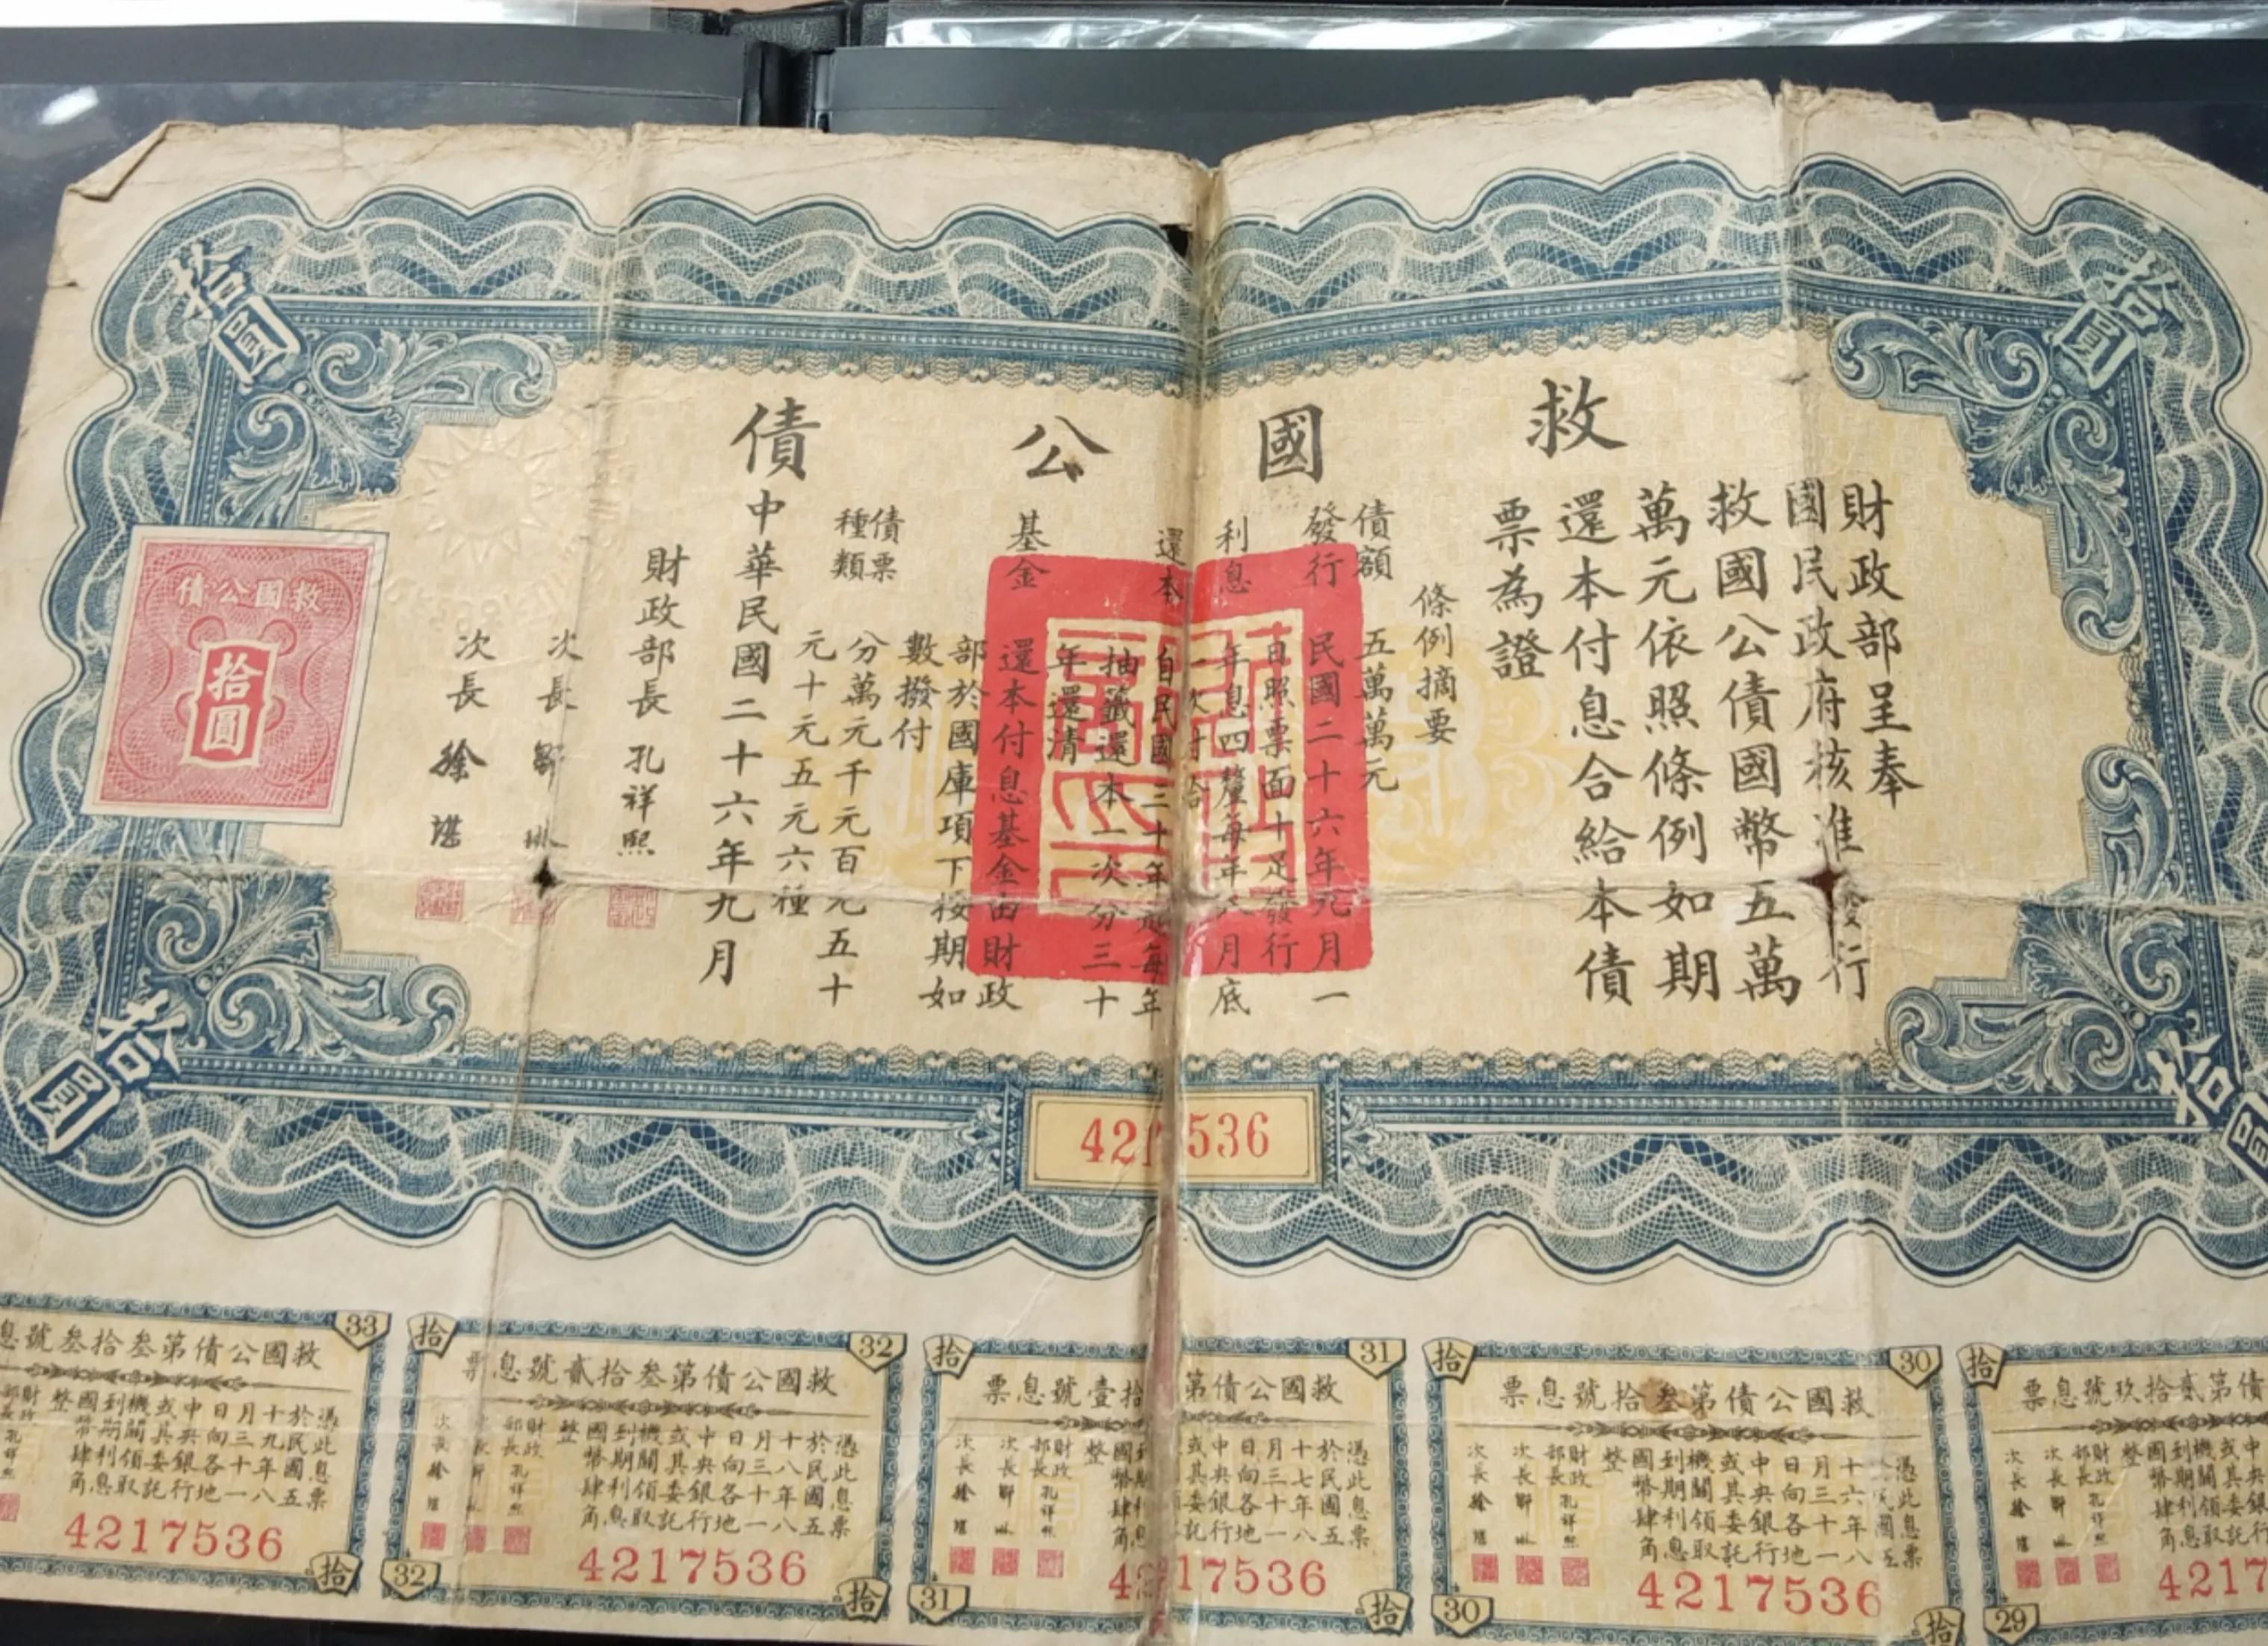 救國公債
拾圓
拾圓
財政部呈奉
國民政府核准發行
救國公債國幣五萬
萬元依照條例如期
還本付息合給本債
票為證
條例摘要
債額 五萬萬元
發行 民國二十六年九月一
日照票面十足發行
利息 年息四釐每年八月底
一次付給
還本 自民國三十年起每年
抽籤還本一次分三十
年還清
基金 還本付息基金由財政
部於國庫項下按期如
數撥付
債票種類 分萬元千元百元五十
元十元五元六種
中華民國二十六年九月
財政部長 孔祥熙
次長 鄒琳
次長 徐堪
救國公債
拾圓
拾圓
拾圓
42 536
29
拾
救國公債第貳拾玖號息票
財政部長 孔祥熙
次長 鄒琳
次長 徐堪
4217
29
30
拾
救國公債第叁拾號息票
憑此息票
於民國五
十六年八
月三十一
日向各地
中央銀行
或其委託
機關領取
到期利息
國幣肆角
整
財政部長 孔祥熙
次長 鄒琳
次長 徐堪
4217536
30
拾
31
拾
救國公債第 拾壹號息票
憑此息票
於民國五
十七年八
月三十一
日向各地
中央銀行
或其委託
到期利息
國幣肆角
整
財政部長 孔祥熙
次長 鄒琳
次長 徐堪
4217536
31
拾
32
拾
救國公債第叁拾貳號息票
憑此息票
於民國五
十八年八
月三十一
日向各地
中央銀行
或其委託
機關領取
到期利息
國幣肆角
整
財政部長 孔祥熙
次長 鄒琳
次長 徐堪
4217536
32
拾
33
救國公債第叁拾叁號息
憑此息票
於民國五
十九年八
月三十一
日向各地
中央銀行
或其委託
機關領取
到期利息
國幣肆角
整
財政部長 孔祥熙
4217536
拾